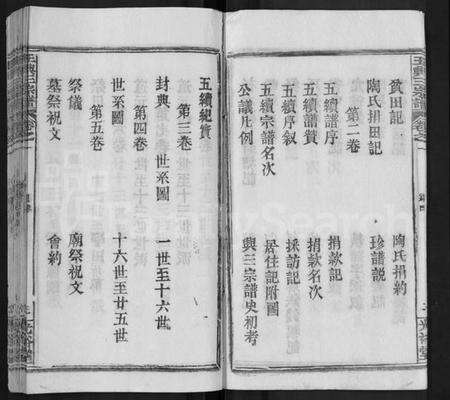 貲田記　陶氏捐約
陶氏捐田記　珍譜説
第二卷
五續譜序　捐款記
五續譜賛　捐款名次
五續序叙　採訪記
五續宗譜名次　居住記附圖
公議凡例　與三宗譜史初考
五續紀實
第三卷
封典　世系圖　一世至十六世
第四卷
世系圖　十六世至廿五世
第五卷
祭儀　廟祭祝文
墓祭祝文　會約